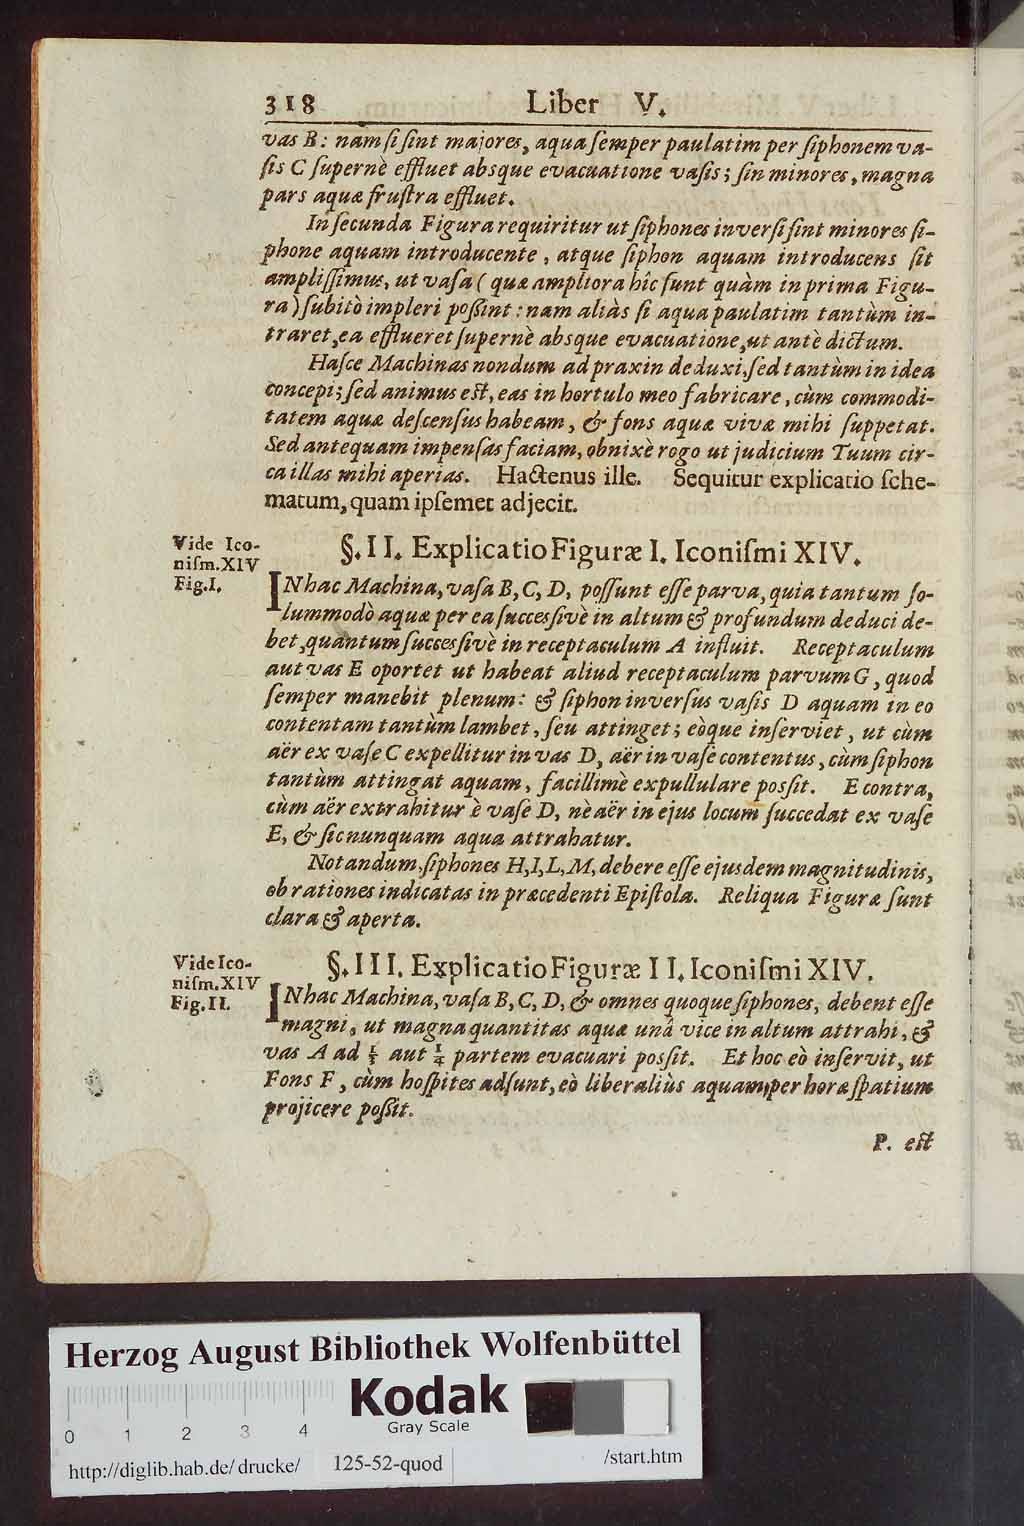 318 Liber V.
vas B: nam ſi ſint majores, aqua ſemper paulatim per ſiphonem va-
ſis C ſupernè effluet absque evacuatione vaſis; ſin minores, magna
pars aquæ fruſtra effluet.
In ſecunda Figura requiritur ut ſiphones inverſi ſint minores ſi-
phone aquam introducente, atque ſiphon aquam introducens ſit
ampliſſimus, ut vaſa (quæ ampliora hîc ſunt quàm in prima Figu-
ra) ſubitò impleri poßint: nam aliàs ſi aqua paulatim tantùm in-
traret, ea efflueret ſupernè absque evacuatione, ut antè dictum.
Haſce Machinas nondum ad praxin deduxi, ſed tantùm in idea
concepi; ſed animus eſt, eas in hortulo meo fabricare, cùm commodi-
tatem aquæ deſcenſus habeam, & fons aquæ vivæ mihi ſuppetat.
Sed antequam impenſas faciam, obnixè rogo ut judicium Tuum cir-
ca illas mihi aperias. Hactenus ille. Sequitur explicatio ſche-
matum, quam ipſemet adjecit.
Vide Ico-
niſm. XIV
Fig. I.
§. II. Explicatio Figuræ I. Iconiſmi XIV.
IN hac Machina, vaſa B, C, D, poſſunt eſſe parva, quia tantum ſo-
lummodò aquæ per ea ſuccesſivè in altum & profundum deduci de-
bet, quantum ſuccesſivè in receptaculum A influit. Receptaculum
aut vas E oportet ut habeat aliud receptaculum parvum G, quod
ſemper manebit plenum: & ſiphon inverſus vaſis D aquam in eo
contentam tantùm lambet, ſeu attinget; eòque inſerviet, ut cùm
aër ex vaſe C expellitur in vas D, aër in vaſe contentus, cùm ſiphon
tantùm attingat aquam, facillimè expullulare posſit. E contra,
cùm aër extrahitur è vaſe D, nè aër in ejus locum ſuccedat ex vaſe
E, & ſic nunquam aqua attrahatur.
Notandum, ſiphones H, I, L, M, debere eſſe ejusdem magnitudinis,
ob rationes indicatas in præcedenti Epiſtola. Reliqua Figuræ ſunt
clara & aperta.
Vide Ico-
niſm. XIV
Fig. II.
§. III. Explicatio Figuræ II. Iconiſmi XIV.
IN hac Machina, vaſa B, C, D, & omnes quoque ſiphones, debent eſſe
magni, ut magna quantitas aquæ unâ vice in altum attrahi, &
vas A ad ⅓ aut ¼ partem evacuari posſit. Et hoc eò inſervit, ut
Fons F, cùm hoſpites adſunt, eò liberaliùs aquam per horæ ſpatium
projicere poßit.
P. eſt
Herzog August Bibliothek Wolfenbüttel
Kodak
Gray Scale
0 1 2 3 4
http://diglib.hab.de/drucke/ 125-52-quod /start.htm